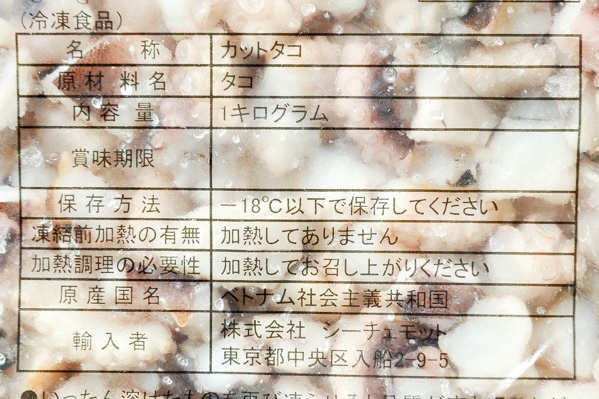 (冷凍食品)
名称 カットタコ
原材料名 タコ
内容量 1キログラム
賞味期限
保存方法 －18℃以下で保存してください
凍結前加熱の有無 加熱してありません
加熱調理の必要性 加熱してお召し上がりください
原産国名 ベトナム社会主義共和国
輸入者 株式会社 シーチェモット
東京都中央区入船2-9-5
●いったん溶けたものを再び凍らせると品質が